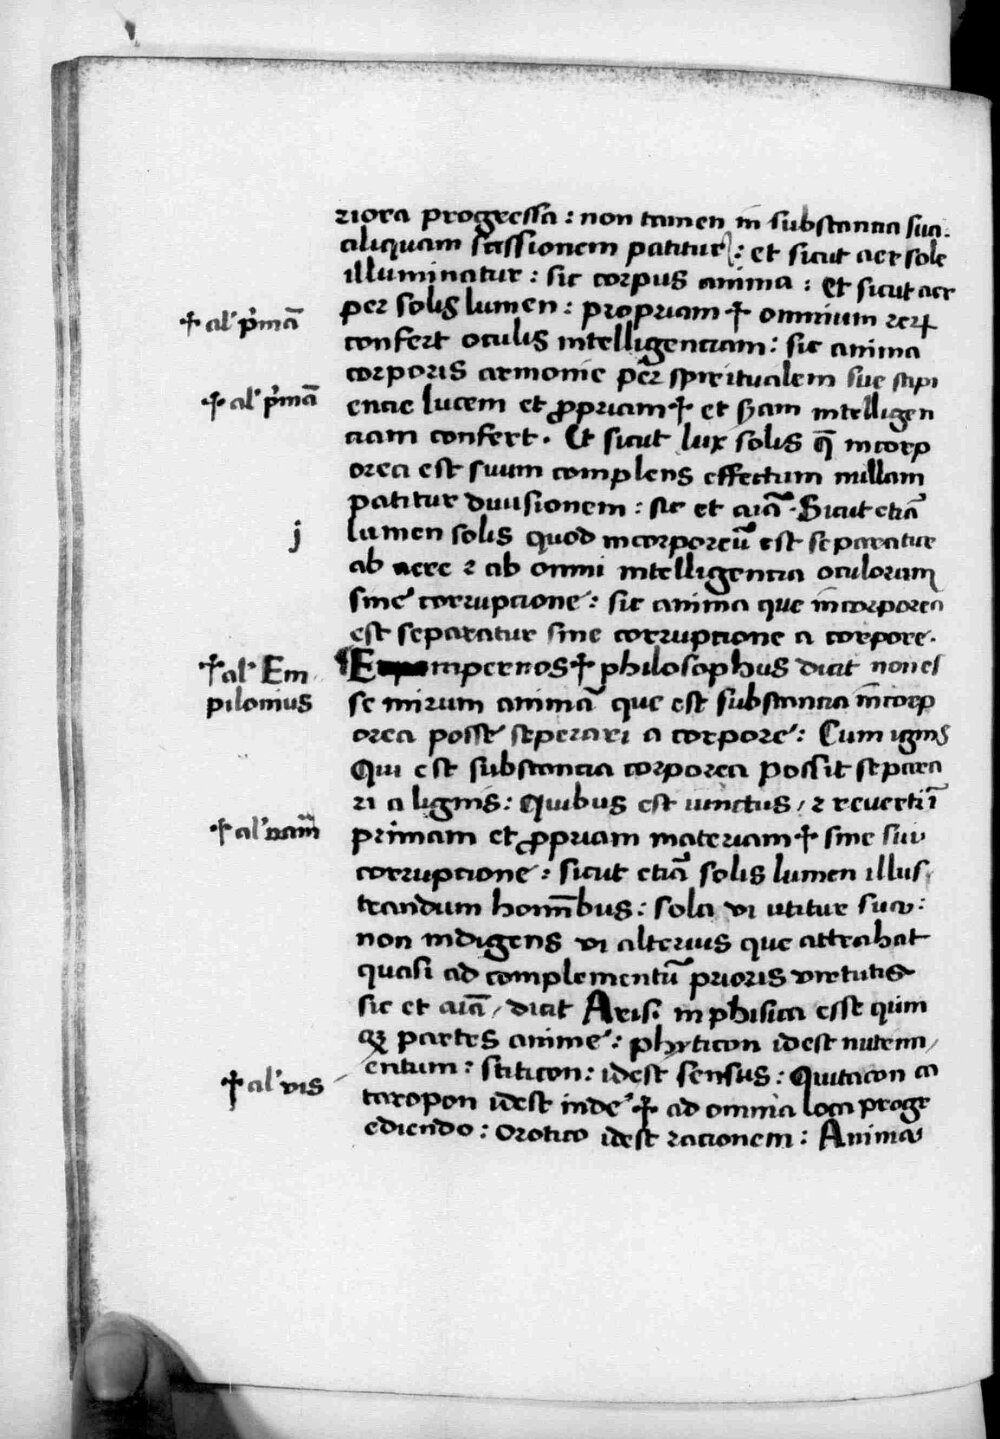 riora progressa : non tamen in substantia sua.
aliquam scissionem patitur : et sicut aer sole
illuminatur : sic corpus anima : Et sicut aer
per solis lumen : propriam ☩ omnium rerꝝ
☩ al' p̍mā
confert oculis intelligentiam : sic anima
corporis armonie per spiritualem sue sapi
☩ al' p̍mā
entie lucem et ꝓpriam ☩ et suam intelligen
tiam confert. Et sicut lux solis q̄ incorp
orea est suum complens effectum nullam
patitur divisionem : sic et aīa. Sicut etiā
j
lumen solis quod incorporeū est separatur
ab aere ⁊ ab omni intelligentia oculorum
sine corruptione : sic anima que incorporea
est separatur sine corruptione a corpore.
☩ al' Em
pilonius
¶ E impernos ☩ philosophus dicit non es
se mirum animā que est substantia incorp
orea posse seperari a corpore : Cum ignis
Qui est substantia corporea possit separa
ri a lignis : Quibus est iunctus / ⁊ reverti ī
☩ al' nām
primam et ꝓpriam materiam ☩ sine sui
corruptione : sicut etiā solis lumen illus
trandum hominibus : sola vi utitur sua :
non indigens vi alterius que attrahat
quasi ad complementū prioris virtutis
sic et aīa / dicit Aris. in phisica esse quin
qꝫ partes anime : phyticon idest nutrim
entum : stiticon : idest sensus : Quitacon ca
☩ al' vis
taropon idest inde ☩ ad omnia loca progr
ediendo : Orotico idest racionem : Anima